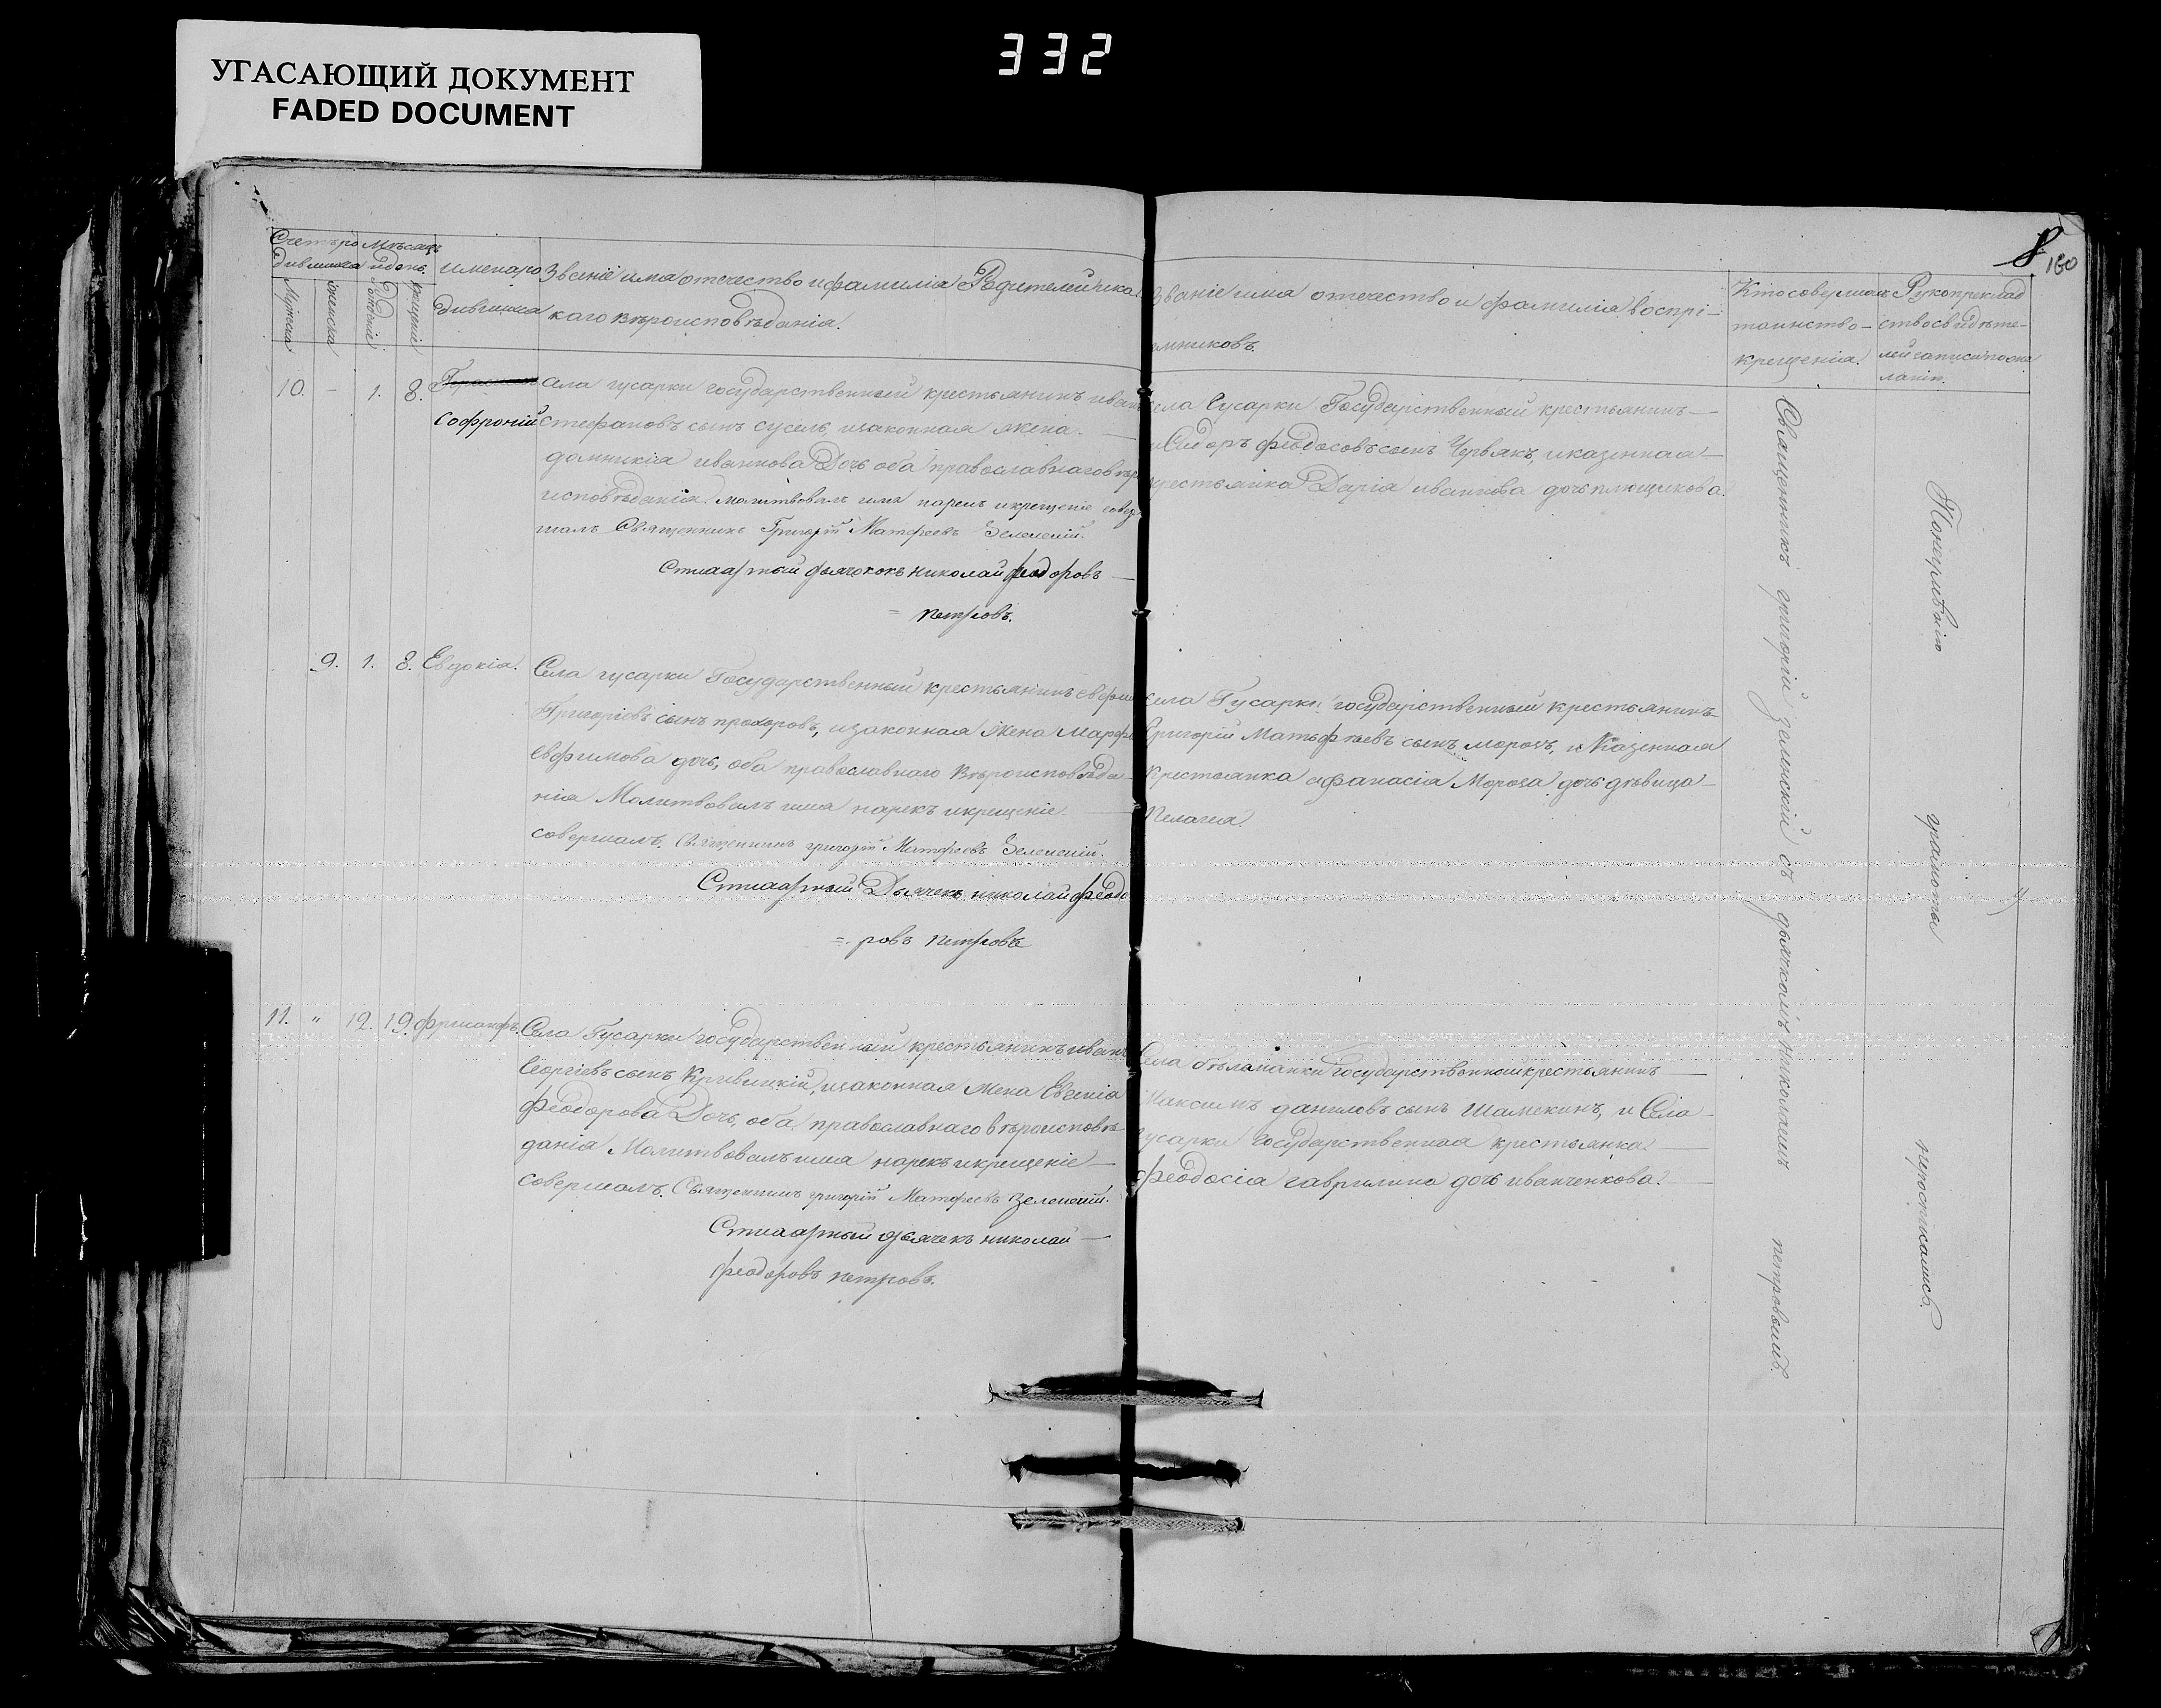 332
УГАСАЮЩИЙ ДОКУМЕНТ
FADED DOCUMENT
8
160
Счетъ ро Мѣсяцъ
дившихъ и день.
Мужеска
женска
рожденія
крещенія
имена ро
дившихся
Званіе имя отечество и фамилія Родителей и ка
каго вѣроисповѣданія.
Званіе имя отечество и фамилія воспрі-
емниковъ.
Кто совершалъ
таинство-
крещенія.
Рукоприклад
ство свидѣте-
лей записи по же
ланію.
10. — 1. 8.
Софроній
Села гусарки государственный крестьянинъ иванъ
стефановъ сынъ сусель, и законная жена. —
домникія иванова дочь оба православнаго вѣро
исповѣданія. молитвовалъ имя нарекъ и крещеніе совер
шалъ Священникъ Григорій Матфеевъ Зеленскій.
Стихарный дьячокъ николай феодоровъ —
= петровъ.
села Гусарки Государственный крестьянинъ —
Сидоръ феодосовъ сынъ Червякъ, и казенная —
крестьянка Дарія иванова дочь плющикова.
9. 1. 8. Евдокія.
Села гусарки Государственный крестьянинъ евфим
Григоріевъ сынъ прохоровъ, и законная жена Марфа
евфимова дочь, оба православнаго вѣроисповѣда-
нія Молитвовалъ имя нарекъ и крещеніе —
совершалъ. Священникъ григорій Матфеевъ Зеленскій.
Стихарный Дьячекъ николай феодо
=. ровъ петровъ
села Гусарки государственный крестьянинъ-
Григорій Матьфѣевъ сынъ морозъ, и Казенная
Крестьянка афанасія Мороза дочь дѣвица —
Пелагея.
11. " 12. 19.
Села Гусарки государственный крестьянинъ иванъ
Георгіевъ сынъ Кривицкій, и законная жена Евгенія
феодорова Дочь, оба православнаго вѣроисповѣ-
данія Молитвовалъ имя нарекъ и крещеніе —
совершалъ. Священникъ григорій Матфеевъ Зеленскій.
Стихарный дьячекъ николай —
феодоровъ петровъ.
Села бѣлманки Государственный крестьянинъ —
Максимъ даниловъ сынъ Шамекинъ, и Села —
гусарки государственная крестьянка —
феодосія гаврилина дочь иванченкова. —
Священникъ григорій зеленскій съ дьячкомъ николаемъ петровымъ.
Понеумѣнію грамоты неросписались.